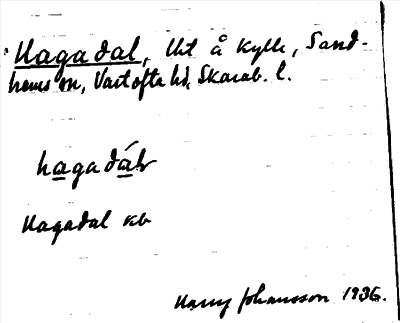 Hagadal, lht å Kylle, Sand-
hems sn, Vartofta hd, Skarab. l.
hagadáłr
Hagadal kb
Harry Johansson 1936.